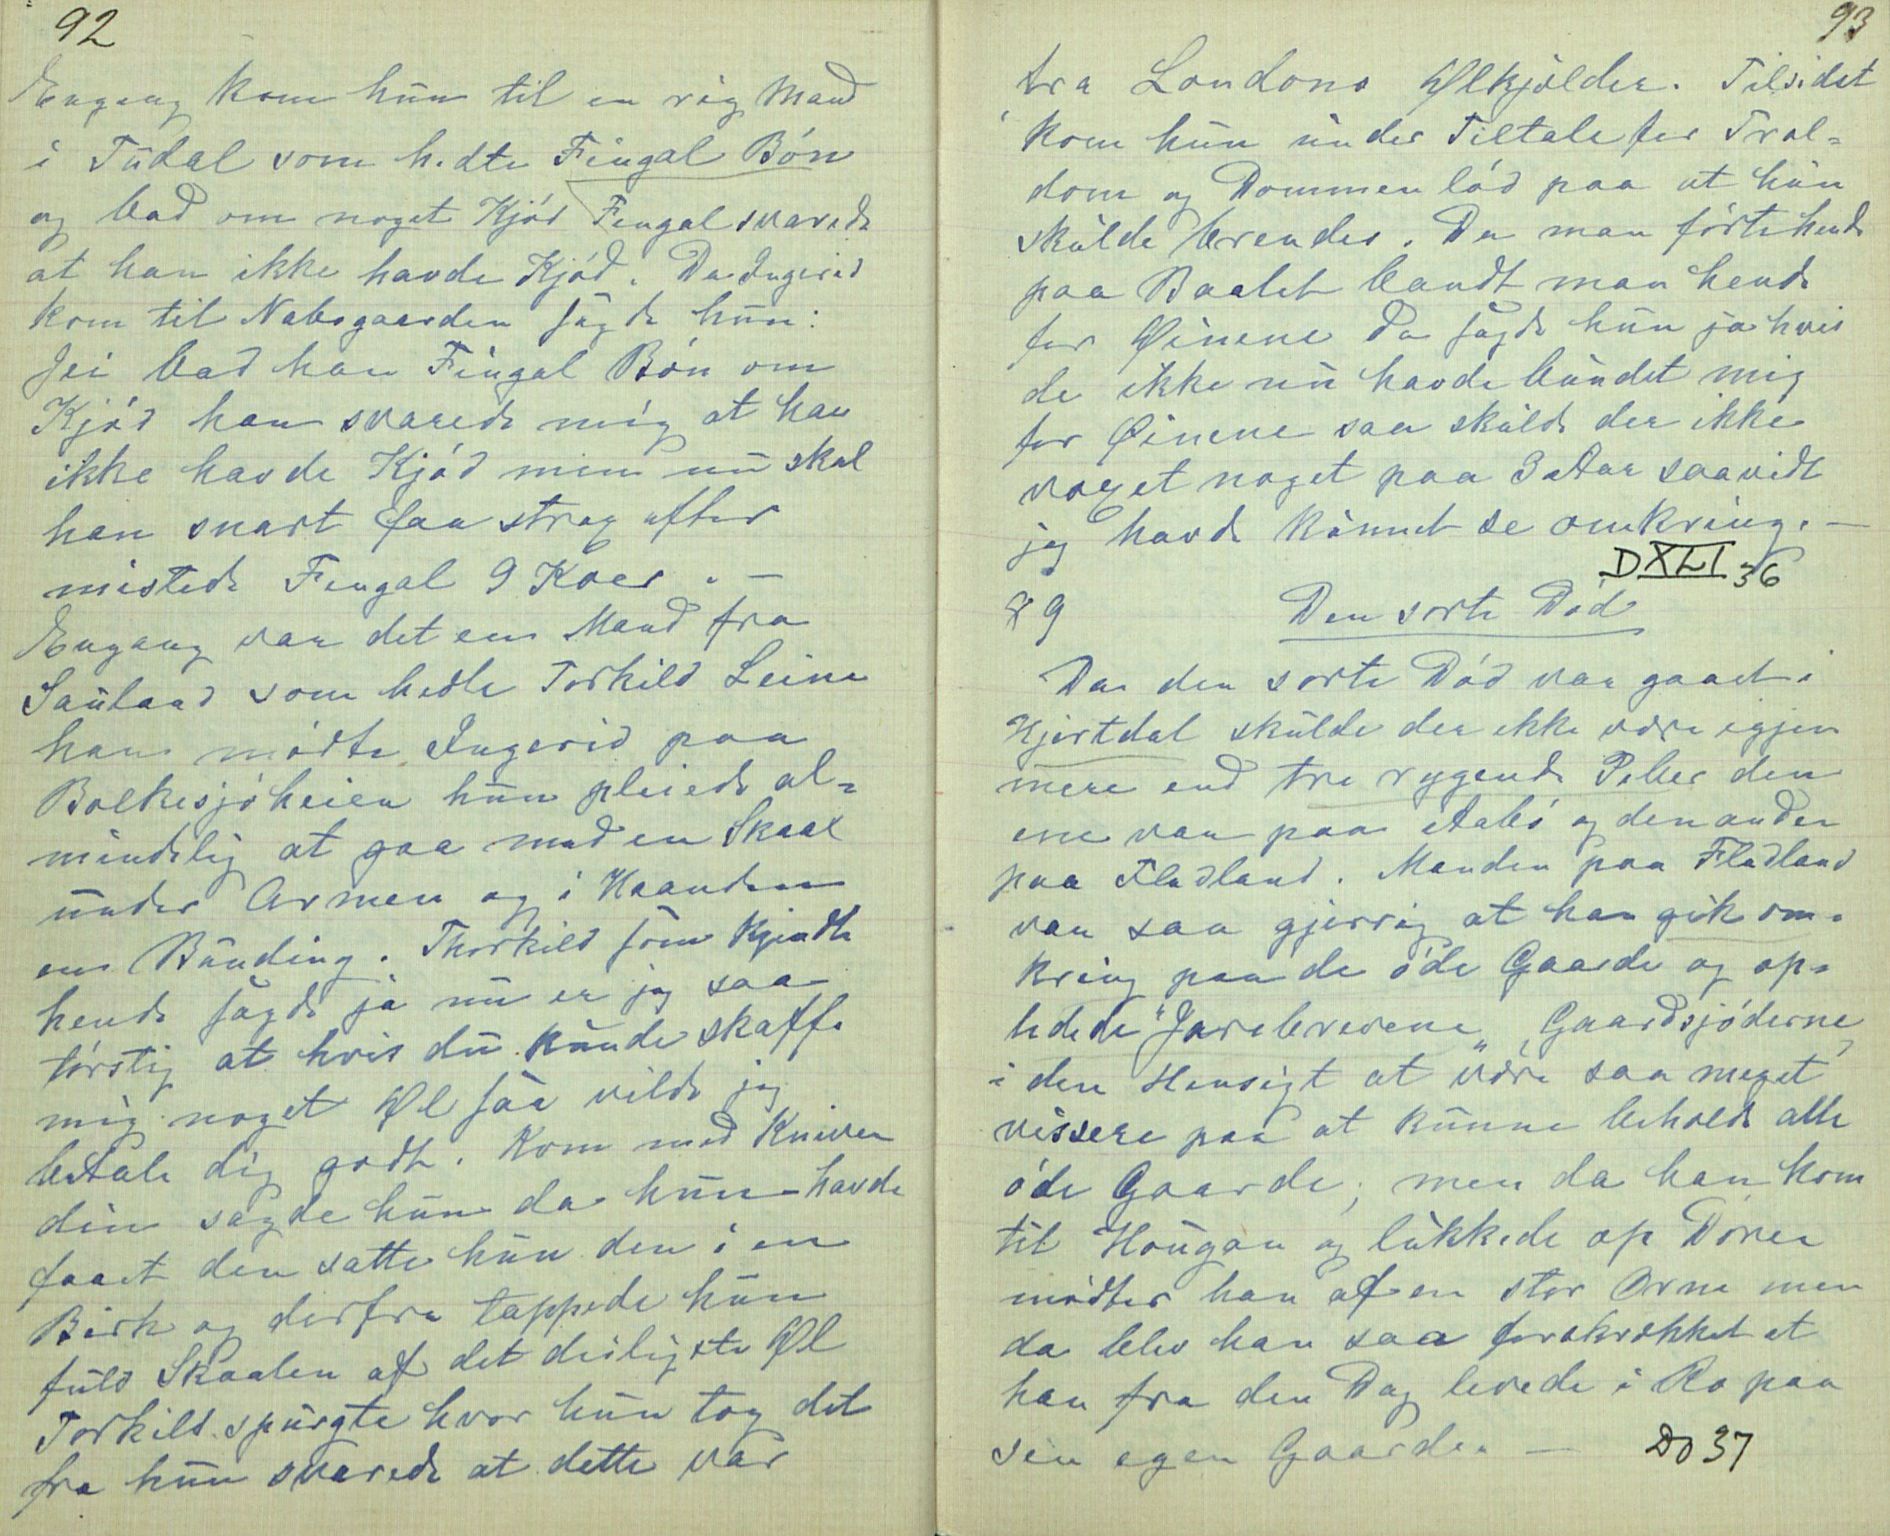 92
Engang kom hun til en rig Mand
i Tudal som hedte Fingal Bón
og bad om noget Kjód Fingal svarede
at han ikke havde Kjód. Da Ingerid
kom til Nabogaarden sagde hun:
Jei bad han Fingal Bón om
Kjód han svarede mig at han
ikke havde Kjód men nu skal
han snart faa strax efter
mistede Fingal 9 Køer. —
Engang var det en Mand fra
Sauland som hedte Torkild Leine
han mødte Ingerid paa
Bolkesjóheien hun pleiede al=
mindelig at gaa med en Skaal
under Armen og i Haanden
en Bunding. Thorkild som kjendte
hende sagde ja nu er jeg saa
tórstig at hvis du kunde skaffe
mig noget Øl saa vilde jeg
betale dig godt. Kom med Kniven
din sagde hun da hun havde
faaet den satte hun den i en
Birk og derfra tappede hun
fuld Skaalen af det deiligste Øl
Torkild spurgte hvor hun tog det
fra hun svarede at dette var
93
fra Londons Ølkjelder. Tilsidst
kom hun under Tiltale for Trol=
dom og Dommen lód paa at hun
skulde brendes. Da man fórte hende
paa Baalet bandt man hende
for Øinene da sagde hun ja hvis
de ikke nu havde bundet mig
for Øinene saa skulde der ikke
voxet noget paa 3 Aar saavidt
jeg havde kunnet se omkring. —
DXLI 36
89 Den sorte Dód
Da den sorte Dód var gaaet i
Hjertdal skulde der ikke være igjen
mere end tre rygende Peber den
ene var paa Aabó og den anden
paa Fladland. Manden paa Fladland
var saa gjerrig at han gik om=
kring paa de óde Gaarde og op=
ledede "Jarebrevene" Gaardsjóderne,
i den Hensigt at være saa meget
vissere paa at kunne beholde alle
óde Gaarde; men da han kom
til Hougan og lukkede op Dóren
mødtes han af en stor Orne men
da blev han saa forskrækket at
han fra den Dag levede i Ro paa
sin egen Gaarden —
Do 37